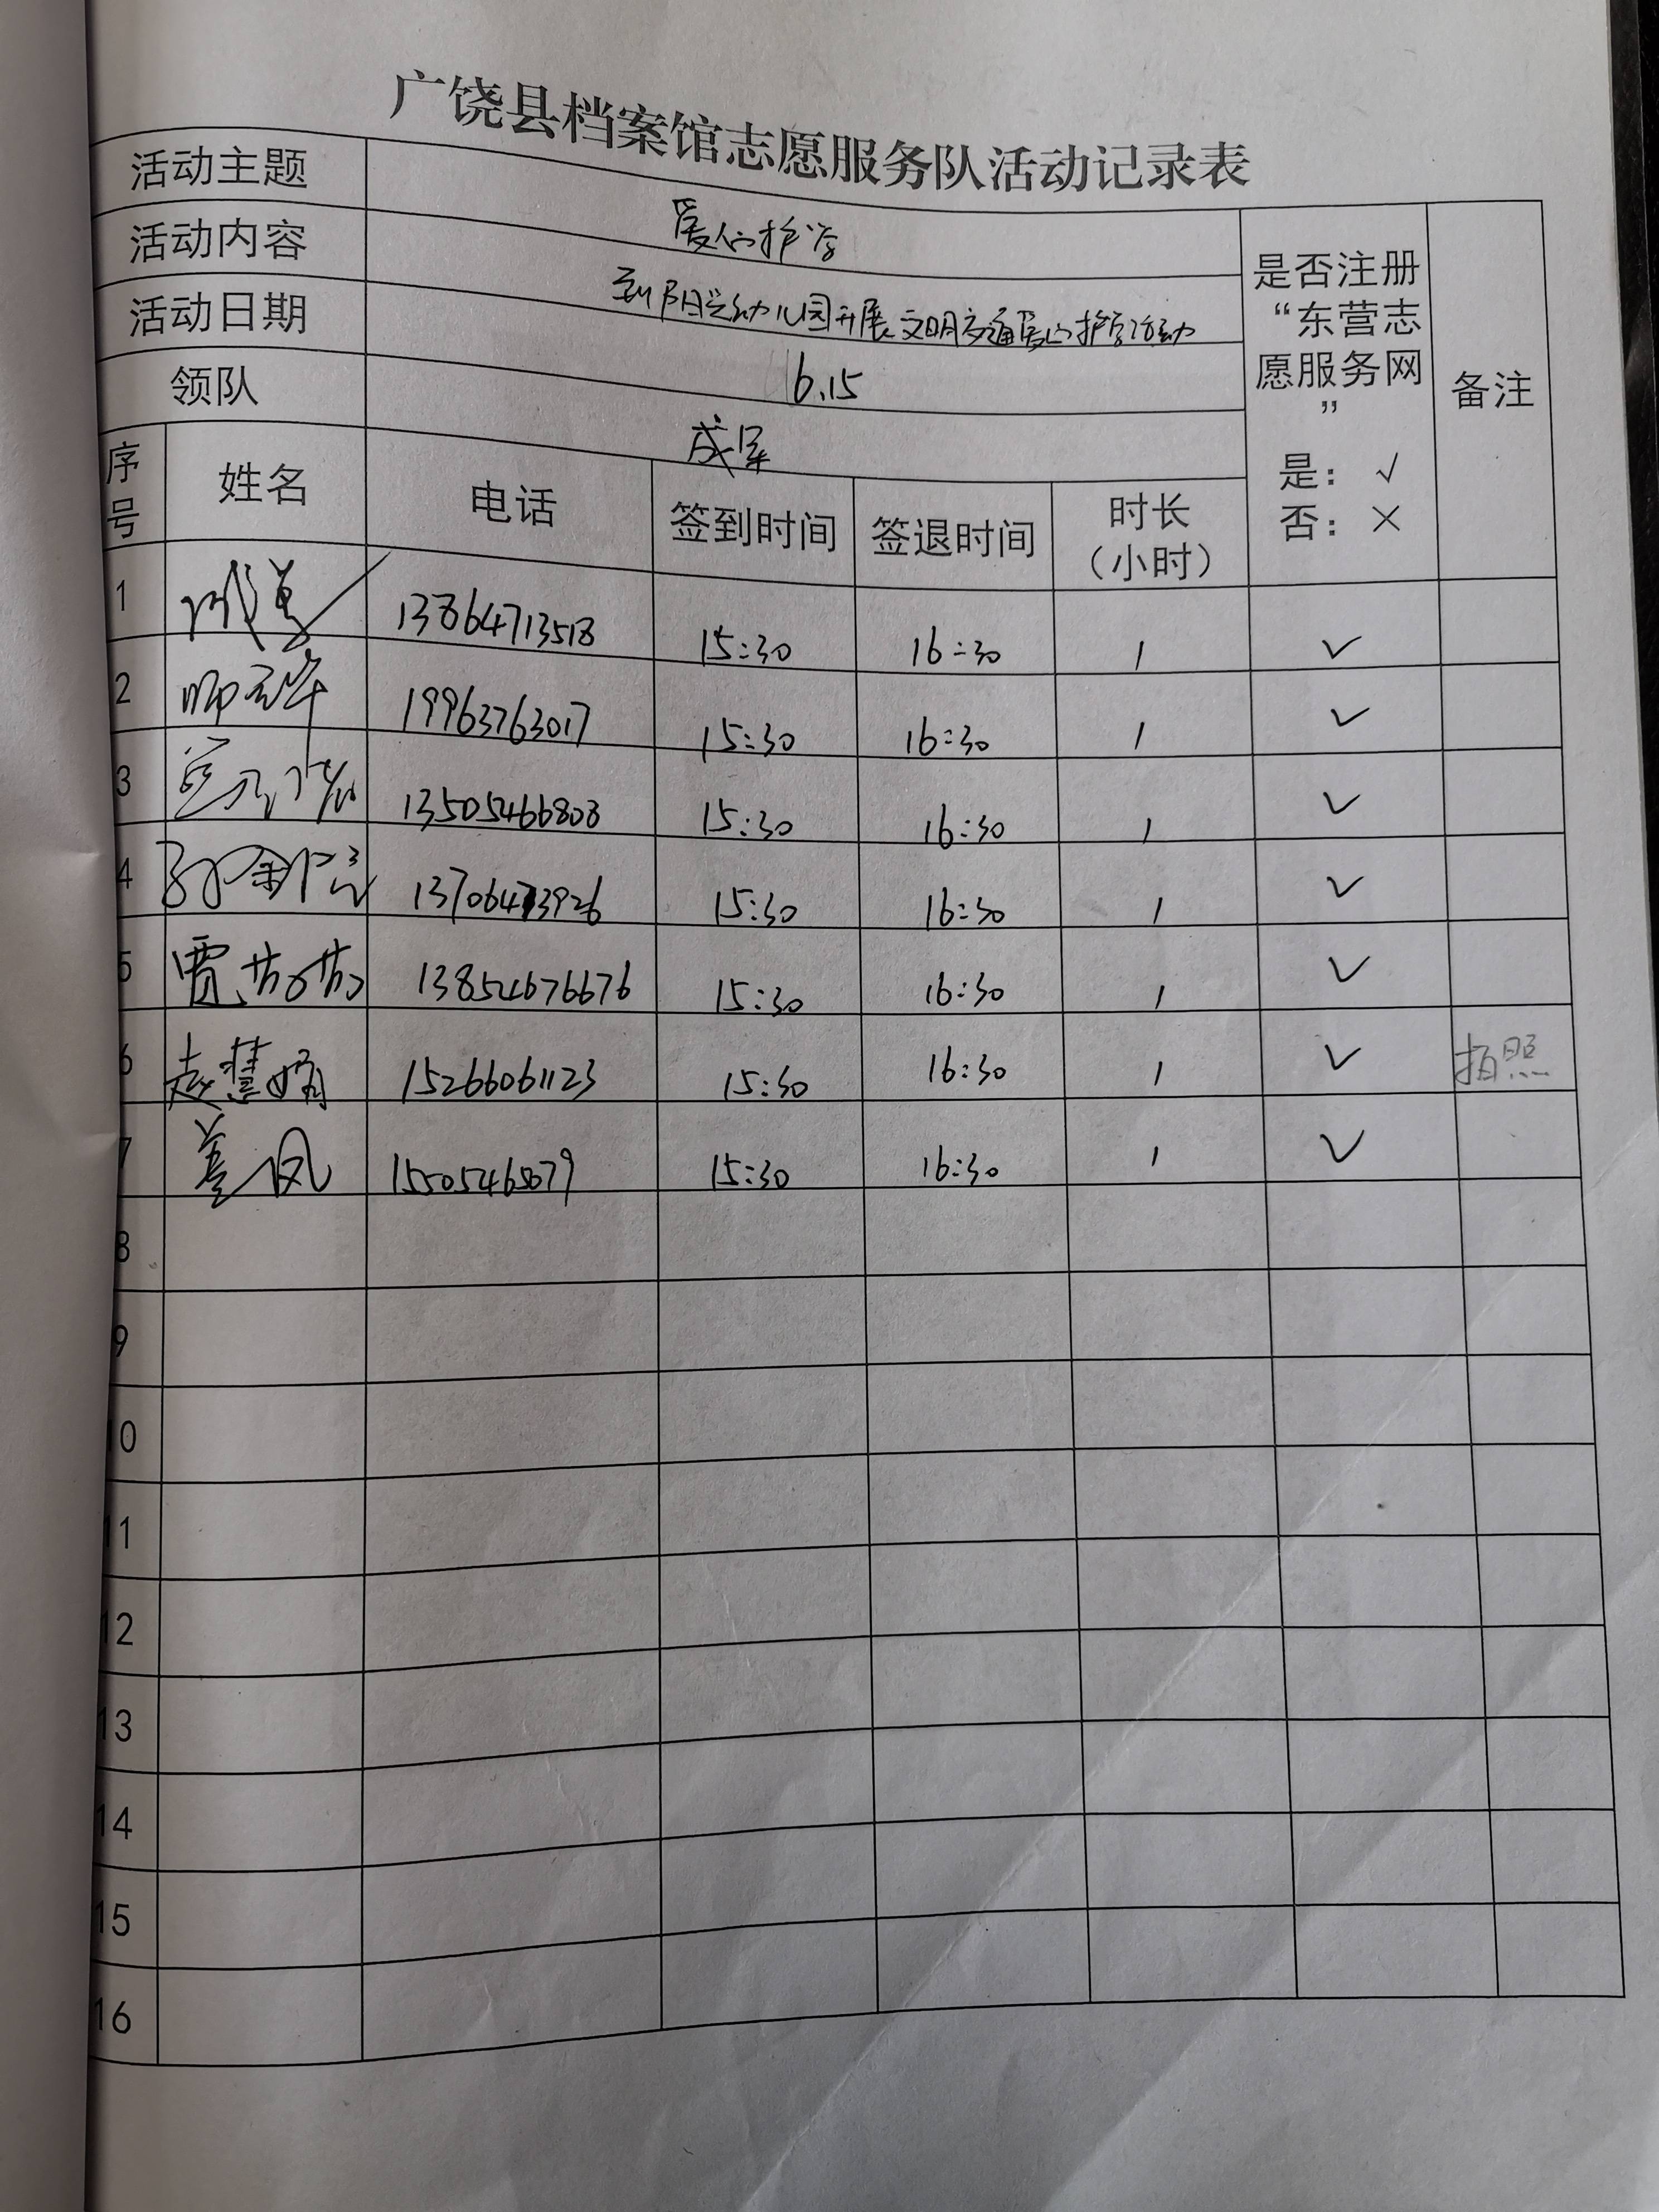 广饶县档案馆志愿服务队活动记录表
活动主题 爱心护学
活动内容 到阳光幼儿园开展文明交通爱心护学活动
活动日期 6.15
领队 成军
是否注册
“东营志
愿服务网
”
是：√
否：×
备注
序号 姓名 电话 签到时间 签退时间 时长（小时）
1 13864713518 15:30 16:30 1 ✓
2 19963763017 15:30 16:30 1 ✓
3 13505466808 15:30 16:30 1 ✓
4 13706473926 15:30 16:30 1 ✓
5 贾芳芳 13854676676 15:30 16:30 1 ✓
6 赵慧娟 15266061123 15:30 16:30 1 ✓ 拍照
7 姜凤 15:30 16:30 1 ✓
8
9
10
11
12
13
14
15
16